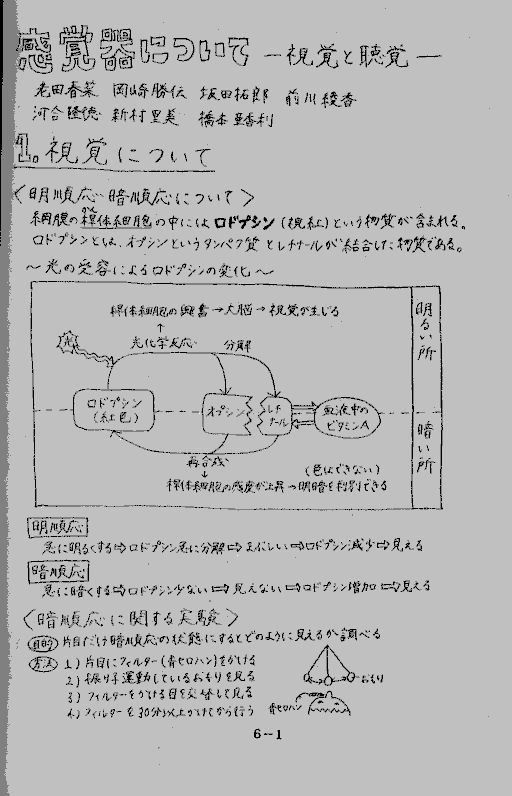 感覚器について ―視覚と聴覚―
老田春菜 岡崎勝伝 坂田拓郎 前川綾香
河合隆徳 新村里美 橋本亜香利
1. 視覚について
〈明順応・暗順応について〉
網膜の桿体細胞の中には ロドプシン (視紅)という物質が含まれる。
ロドプシンとは、オプシンというタンパク質とレチナールが結合した物質である。
〜光の受容によるロドプシンの変化〜
桿体細胞の興奮→大脳→視覚が生じる
明るい所
光
光化学反応 分解
ロドプシン
(紅色)
オプシン
レチナール
血液中の
ビタミンA
暗い所
再合成
(色はできない)
桿体細胞の感度が上昇→明暗を判別できる
明順応
急に明るくする⇨ロドプシン急に分解⇨まぶしい⇨ロドプシン減少⇨見える
暗順応
急に暗くする⇨ロドプシン少ない⇨見えない⇨ロドプシン増加⇨見える
〈暗順応に関する実験〉
目的 片目だけ暗順応の状態にするとどのように見えるか調べる
方法 1) 片目にフィルター(青セロハン)をかける
2) 振り子運動しているおもりを見る
おもり
3) フィルターをかける目を交替して見る
4) フィルターを30分以上かけてから行う
青セロハン
6-1